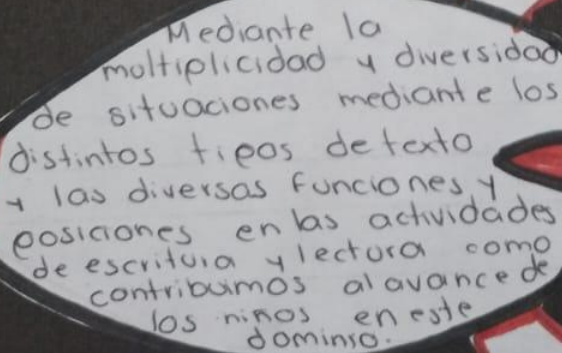 Mediante la
moltiplicidad y diversidad
de situaciones mediante los
distintos tipos de texto
y las diversas funciones y
posiciones en las actividades
de escritura y lectura como
contribuimos al avance de
los niños en este
dominio.